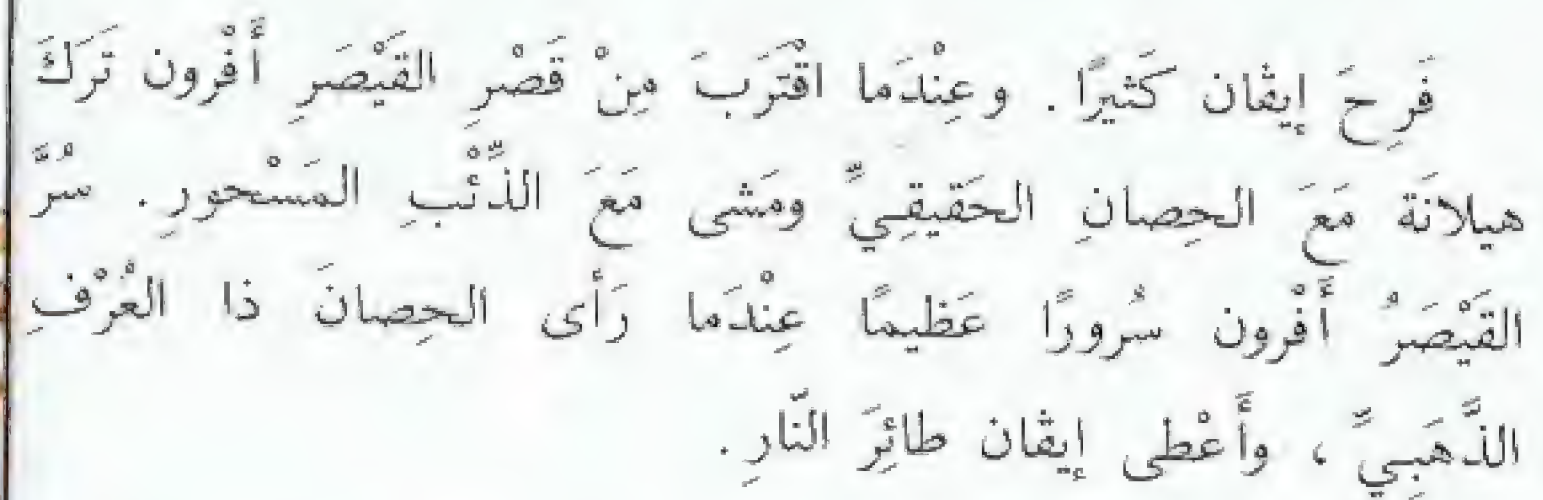 فَرِحَ إيڤان كَثيرًا. وعِنْدَما اقْتَرَبَ مِنْ قَصْرِ القَيْصَرِ أَفْرون تَرَكَ
هيلانَة مَعَ الحِصانِ الحَقيقِيِّ ومَشى مَعَ الذِّئْبِ المَسْحورِ. سُرَّ
القَيْصَرُ أَفْرون سُرورًا عَظيمًا عِنْدَما رَأى الحِصانَ ذا العُرْفِ
الذَّهَبِيِّ، وأَعْطى إيڤان طائِرَ النّارِ.